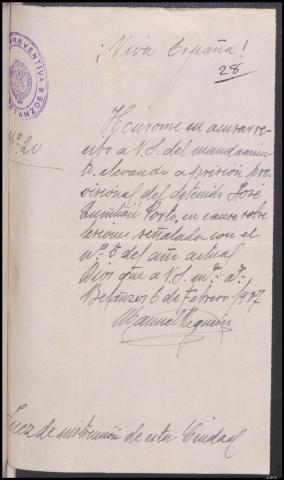 ¡Viva España!
28
PREVENTIVA
Nº 20
Hónrome en acusar re-
cibo a V.S. del mandamien-
to, elevando a prisión pro-
visional del detenido José
Porto, en causa sobre
lesiones señalada con el
nº 5 del año actual
Dios gue a V.S. m.s a.s
Betanzos 6 de Febrero 1937
Manuel
Juez de instrucción de esta Ciudad